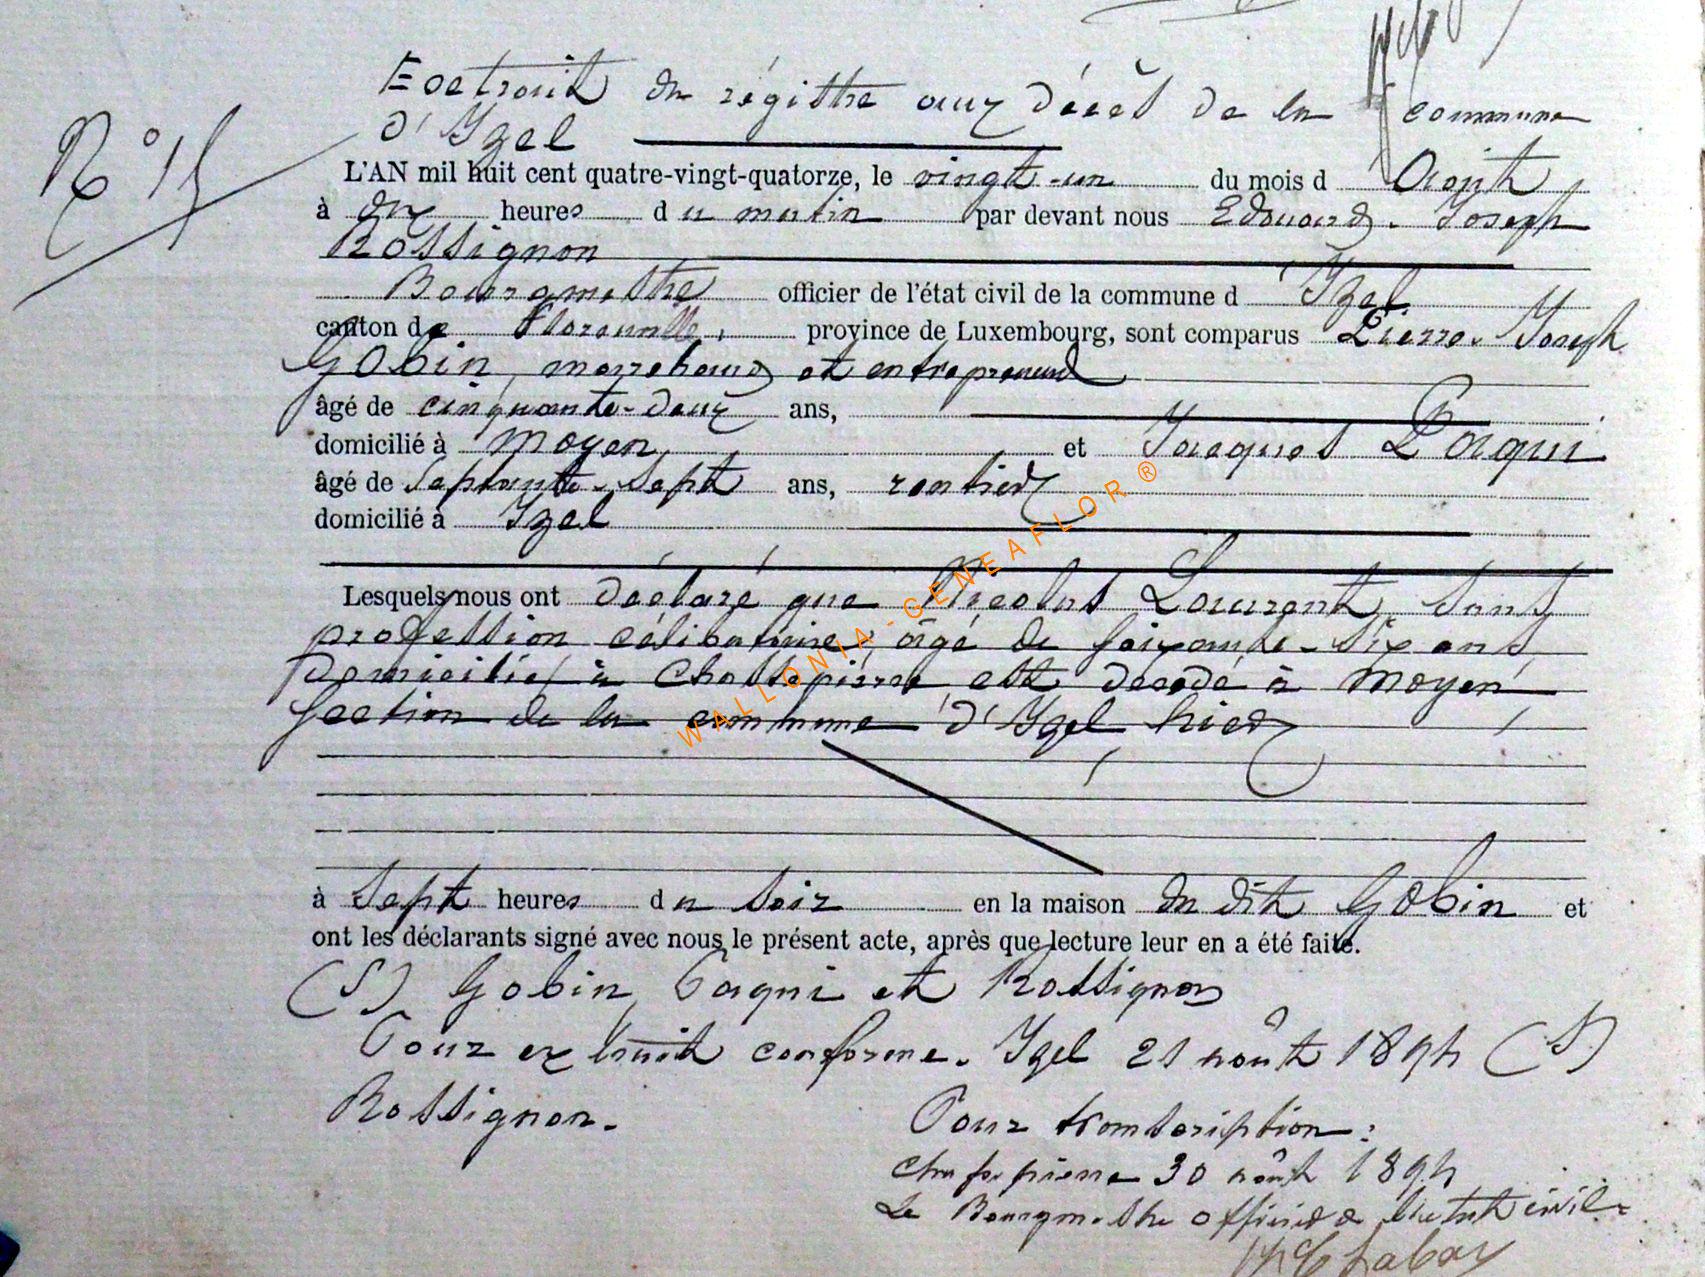 Extrait du régistre aux décès de la commune
d'Izel
N° 15
L'AN mil huit cent quatre-vingt-quatorze, le vingt-un du mois d Août
à onz heures du matin par devant nous Edouard-Joseph
Rossignon
Bourgmestre officier de l'état civil de la commune d Izel
canton de Florenville, province de Luxembourg, sont comparus Pierre-Joseph
Gobin, marchand et entrepreneur
âgé de cinquante-deux ans,
domicilié à Moyen et Jacques Paqui
âgé de septante-sept ans, rentier
domicilié à Izel
Lesquels nous ont déclaré que Nicolas Laurent, sans
profession célibataire, âgé de soixante-six ans,
domicilié à Chassepierre est décédé à Moyen,
section de la commune d'Izel hier
à sept heures du soir en la maison du dit Gobin et
ont les déclarants signé avec nous le présent acte, après que lecture leur en a été faite.
(S) Gobin, Paqui et Rossignon
Pour extrait conforme. Izel 21 août 1894 (S)
Rossignon.
Pour transcription:
Chassepierre 30 août 1894
Le Bourgmestre officier de l'état civil
WALLONIA-GENEAFLOR®